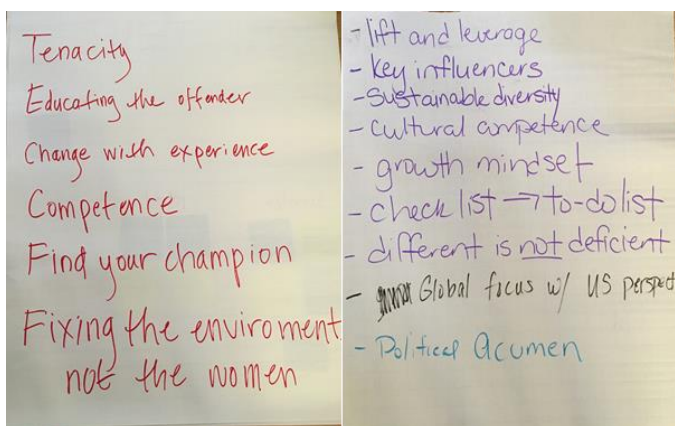 Tenacity
Educating the offender
Change with experience
Competence
Find your champion
Fixing the enviroment
not the women
- lift and leverage
- key influencers
- Sustainable diversity
- cultural competence
- growth mindset
- check list → to-do list
- different is not deficient
- Global focus w/ US perspect
- Political Acumen